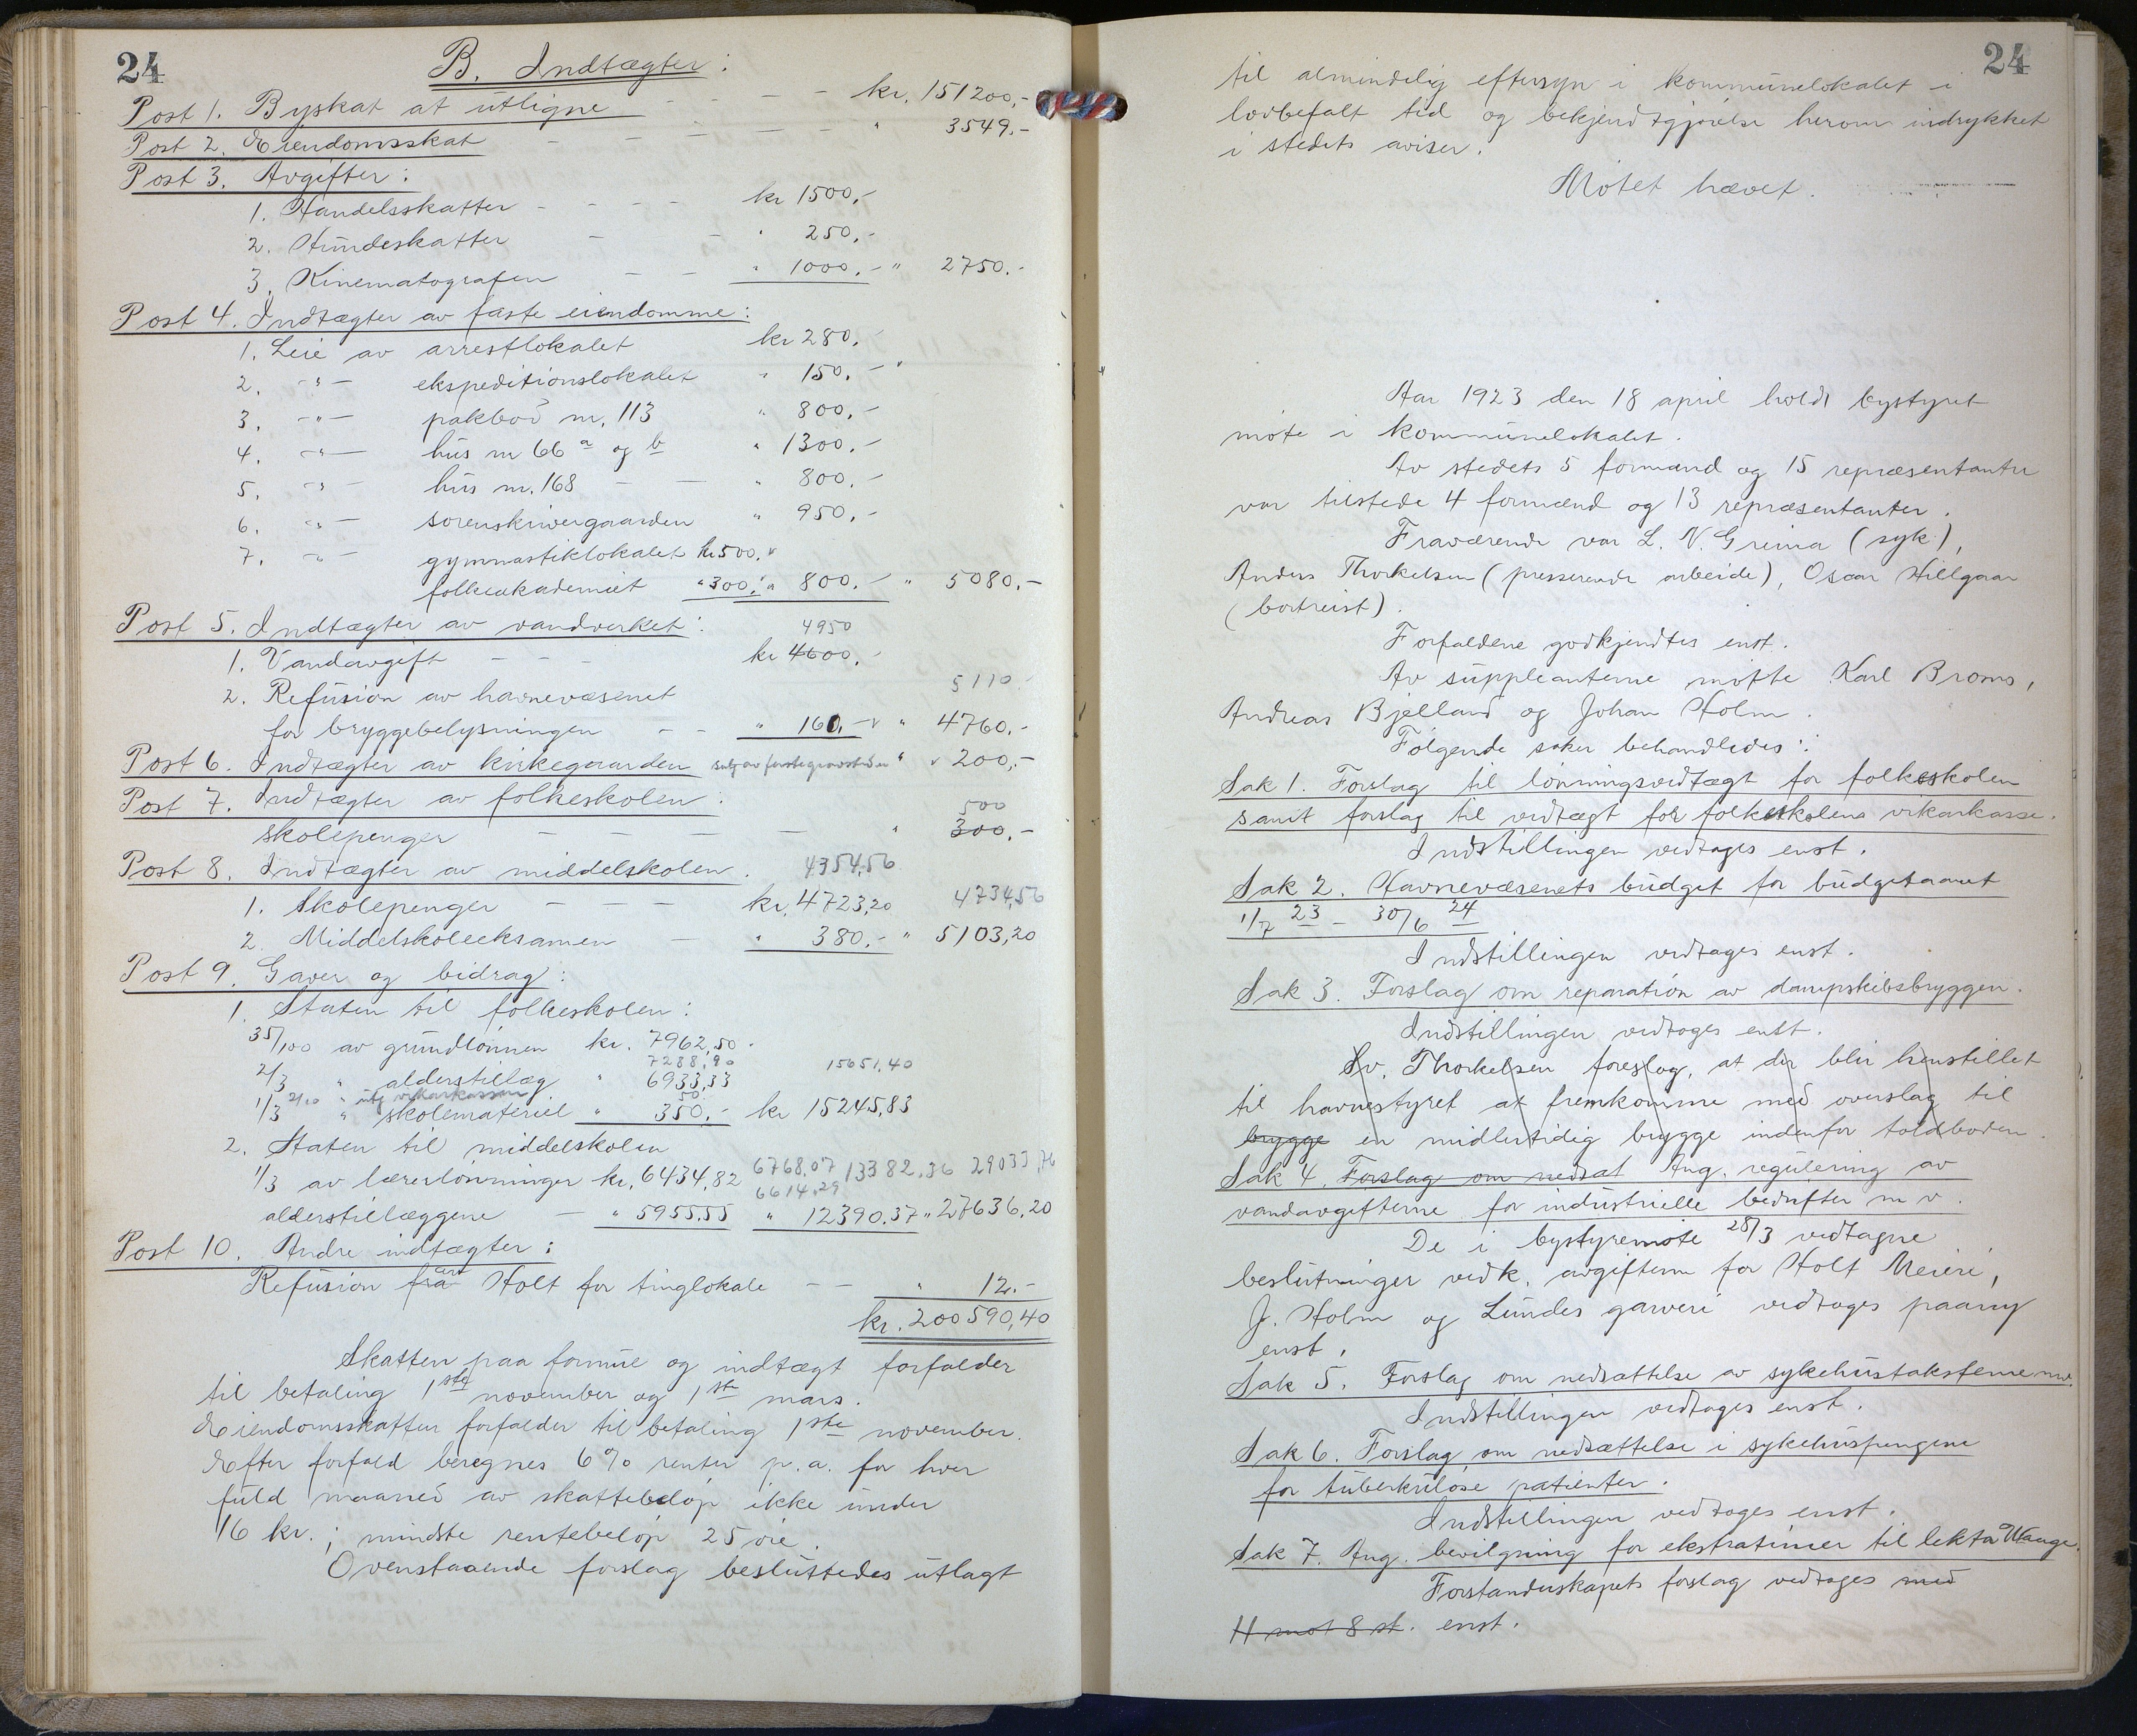 24
B. Indtægter:
Post 1. Byskat at utligne - - - - kr. 151200,-
Post 2. Eiendomsskat - - - - " 3549.-
Post 3. Avgifter:
1. Handelsskatter - - - - kr 1500,-
2. Hundeskatter - - " 250,-
3. Kinematografen - - " 1000.- " 2750.-
Post 4. Indtægter av faste eiendomme:
1. Leie av arrestlokalet kr 280,-
2. -"- ekspeditionslokalet " 150.- "
3. -"- pakbod nr. 113 " 800,-
4. -"- hus nr 66 a og b " 1300.-
5. -"- hus nr. 168 - - " 800.-
6. -"- sorenskrivergaarden " 950,-
7. -"- gymnastiklokalet kr 500,-
folkeakademiet " 300,- " 800.- " 5080,-
Post 5. Indtægter av vandverket:
4950
1. Vandavgift - - - kr 4600,-
2. Refusion av havnevæsenet 5110.-
for bryggebelysningen - - " 160,- " 4760.-
Post 6. Indtægter av kirkegaarden salg av faste gravsteder " 200,-
Post 7. Indtægter av folkeskolen:
500
skolepenger - - - - " 300.-
Post 8. Indtægter av middelskolen. 4354,56
1. Skolepenger - - - kr. 4723,20 4734,56
2. Middelskoleeksamen - " 380.- " 5103,20
Post 9. Gaver og bidrag:
1. Staten til folkeskolen:
35/100 av grundlønnen kr. 7962,50
7288,90 15651,40
2/3 " alderstillæg " 6933,33
2/10 " utg vikarkassen 50.
1/3 " skolemateriel " 350.- kr 15245,83
2. Staten til middelskolen
6768,07 13382,36 29033,76
1/3 av lærerlønninger kr. 6434,82
6614,29
alderstillæggene - " 5955,55 " 12390.37 " 27636,20
Post 10. Andre indtægter:
Refusion fra Holt for tinglokale - - " 12.-
kr. 200590,40
Skatten paa formue og indtægt forfalder
til betaling 1ste november og 1ste mars.
Eiendomsskatten forfalder til betaling 1ste november.
Efter forfald beregnes 6% renter p.a. for hver
fuld maaned av skattebeløp ikke under
16 kr.; mindste rentebeløp 25 øre.
Ovenstaaende forslag besluttedes utlagt
24
til almindelig eftersyn i kommunelokalet i
lovbefalt tid og bekjendtgjørelse herom indrykket
i stedets aviser.
Møtet hævet.
Aar 1923 den 18 april holdt bystyret
møte i kommunelokalet.
Av stedets 5 formænd og 15 repræsentanter
var tilstede 4 formænd og 13 repræsentanter.
Fraværende var L. N. Greina (syk),
Anders Thorkelsen (presserende arbeide), Oscar Hillgaar
(bortreist).
Forfaldene godkjendtes enst.
Av suppleanterne møtte Karl Broms,
Andreas Bjelland og Johan Holm.
Følgende saker behandledes:
Sak 1. Forslag til lønningsvedtægt for folkeskolen
samt forslag til vedtægt for folkeskolens vikarkasse.
Indstillingen vedtages enst.
Sak 2. Havnevæsenets budget for budgetaaret
1/7 23 - 30/6 24
Indstillingen vedtages enst.
Sak 3. Forslag om reparation av dampskibsbryggen.
Indstillingen vedtoges enst.
Sv. Thorkelsen foreslog, at der blir henstillet
til havnestyret at fremkomme med overslag til
brygge en midlertidig brygge indenfor toldboden.
Sak 4. Forslag om nedsat Ang. regulering av
vandavgifterne for industrielle bedrifter m v.
De i bystyremøte 28/3 vedtagne
beslutninger vedk. avgifterne for Holt Meieri,
J. Holm og Lundes garveri vedtoges paany
enst.
Sak 5. Forslag om nedsættelse av sykehustaksterne mv.
Indstillingen vedtoges enst.
Sak 6. Forslag om nedsættelse i sykehuspengene
for tuberkuløse patienter.
Indstillingen vedtoges enst.
Sak 7. Ang. bevilgning for ekstratimer til lektor Waage.
Forstanderskapets forslag vedtoges med
11 mot 8 st. enst.